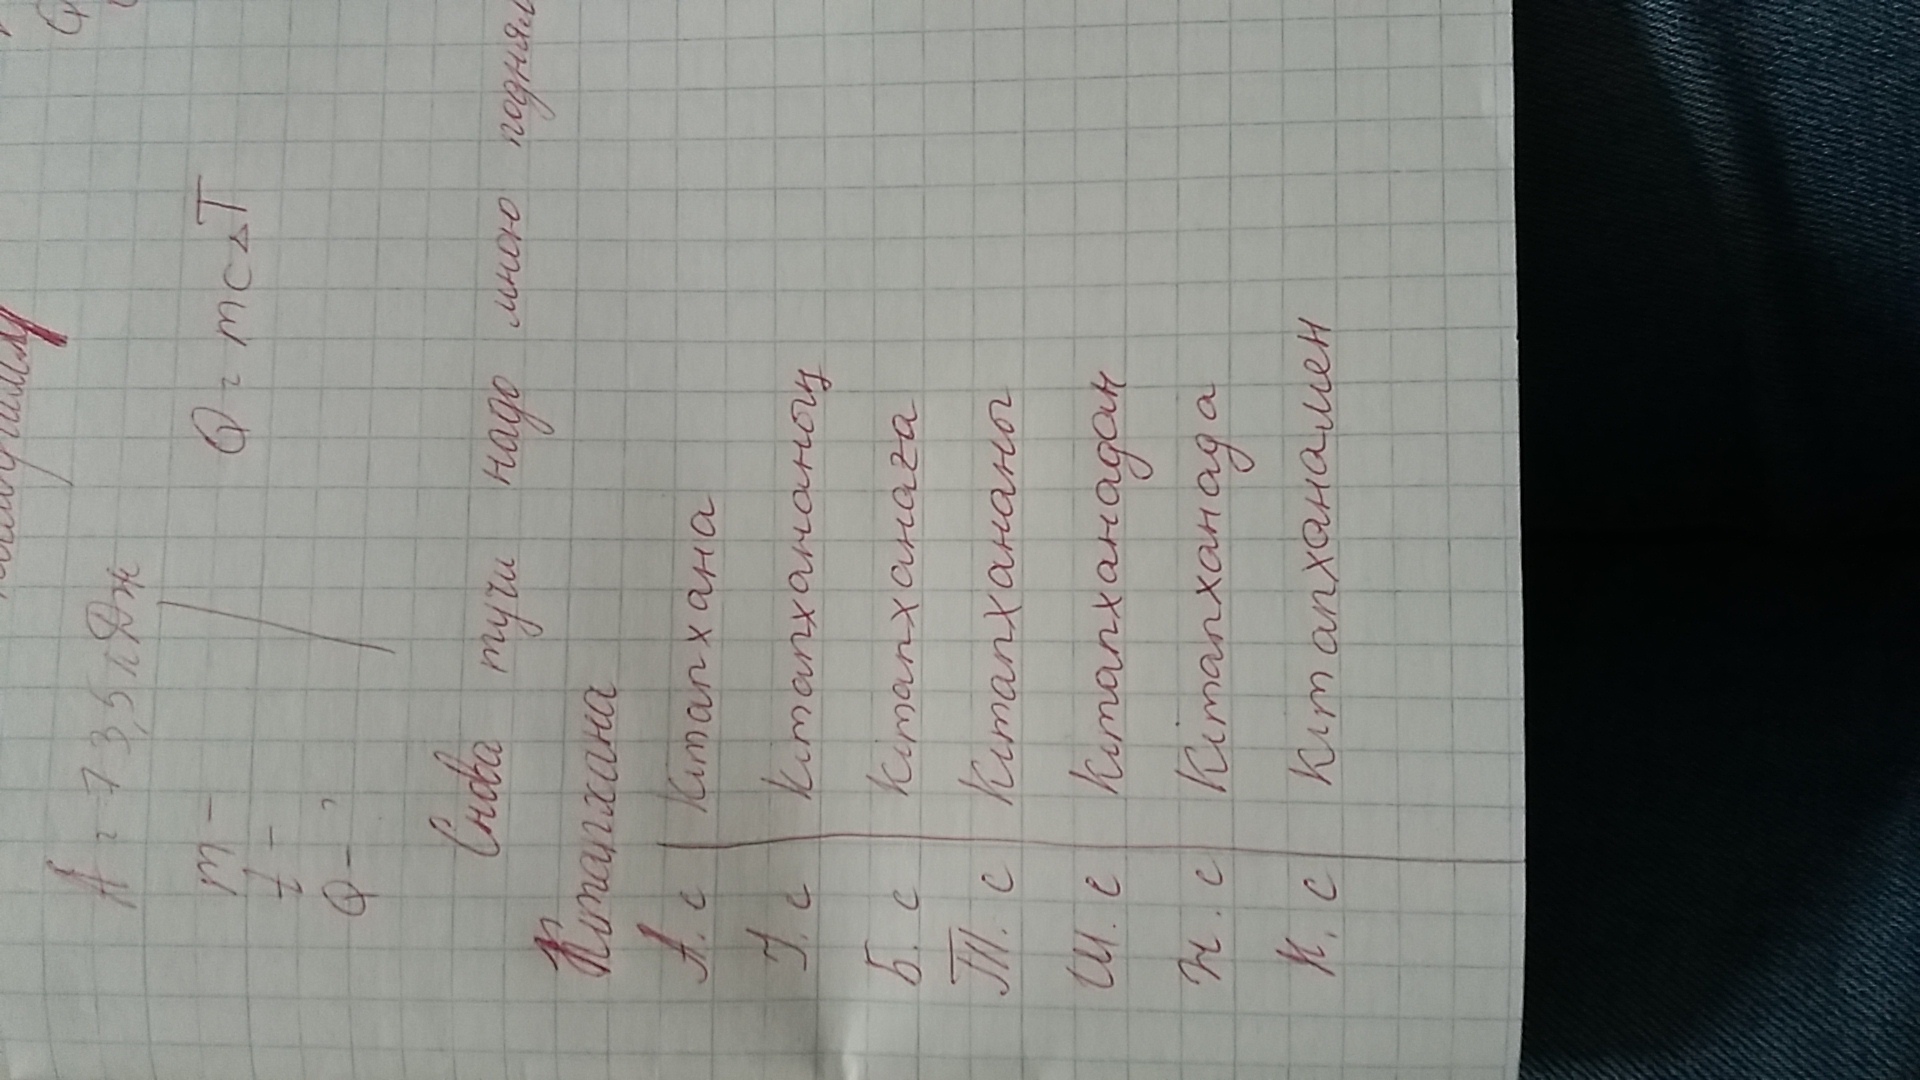 A = 73,5 кДж
m –
t –
Q – ?
Q = mc△T
Снова тучи надо мною
Кітапхана
А. с Кітапхана
І. с Кітапхананың
Б. с Кітапханаға
Т. с Кітапхананы
Ш. с Кітапханадан
Ж. с Кітапханада
К. с Кітапханамен